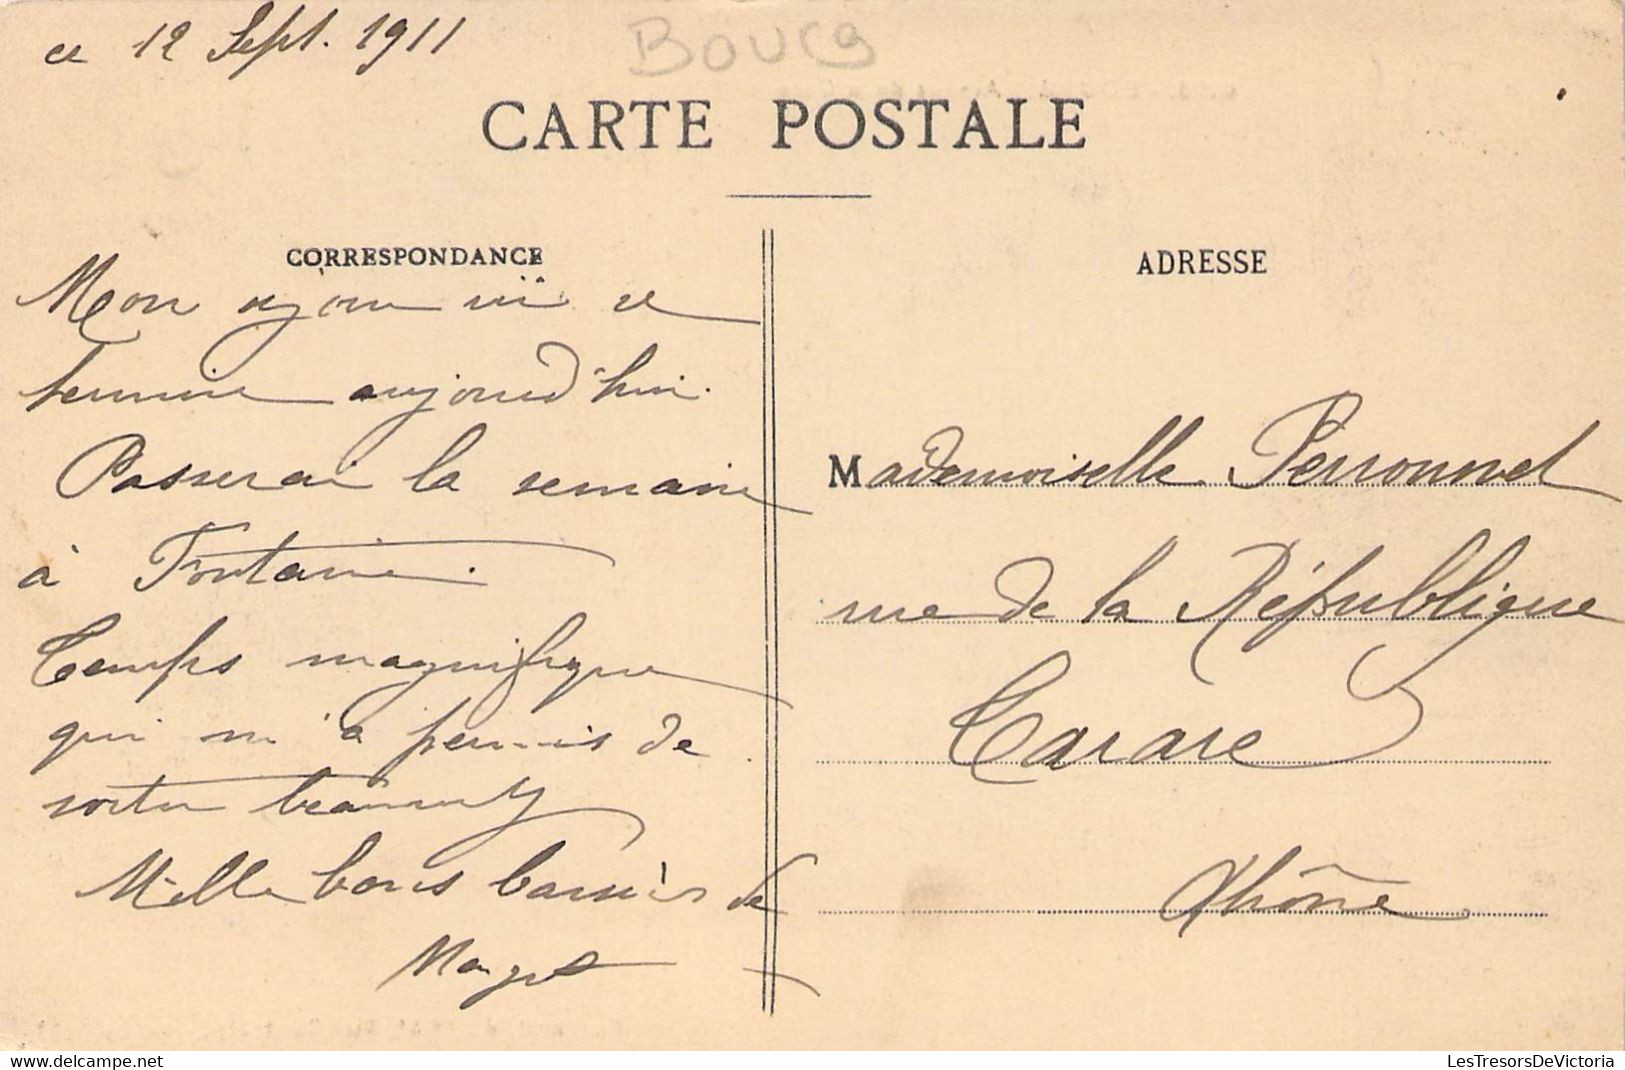 ce 12 Sept. 1911
Bourg
CARTE POSTALE
CORRESPONDANCE
Mon séjour ici se
termine aujourd'hui.
Passerai la semaine
à Fontaine.
Temps magnifique
qui m'a permis de
sortir beaucoup
Mille bons baisers de
Margot
ADRESSE
Mademoiselle Perronnet
rue de la République
Tarare
Rhône
LesTresorsDeVictoria
delcampe.net
LesTresorsDeVictoria